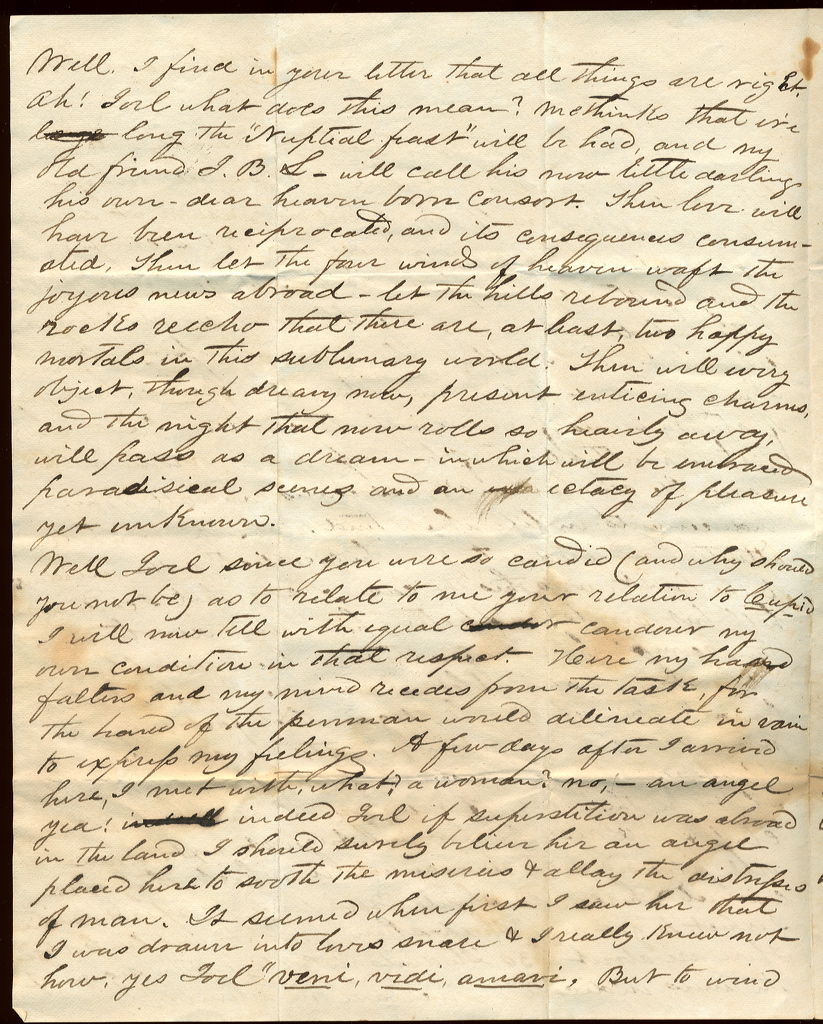 Well. I find in your letter that all things are right.
Ah! Joel what does this mean? Methinks that e're
long the "Nuptial feast" will be had, and my
Old friend J. B. L - will call his now little darling
his own - dear heaven born consort. Then love will
have been reciprocated, and its consequences consum-
ated. Then let the four winds of heaven waft the
joyous news abroad - let the hills rebound and the
rocks reecho that there are, at least, two happy
mortals in this sublunary world. Then will every
object, though dreary now, present enticing charms,
and the night that now rolls so heavily away,
will pass as a dream - in which will be embraced
paradisical scenes and an ectacy of pleasure
yet unknown.
Well Joel since you were so candid (and why should
you not be) as to relate to me your relation to Cupid
I will now tell with equal candour my
own condition in that respect. Here my hand
falters and my mind recedes from the task, for
the hand of the penman would delineate in vain
to express my feelings. A few days after I arrived
here, I met with, what? a woman? no, - an angel
yea! indeed Joel if superstition was abroad
in the land I should surely believe her an angel
placed here to sooth the miseries & allay the distresses
of man. It seemed when first I saw her that
I was drawn into loves snare & I really knew not
how, yes Joel "veni, vidi, amavi. But to wind